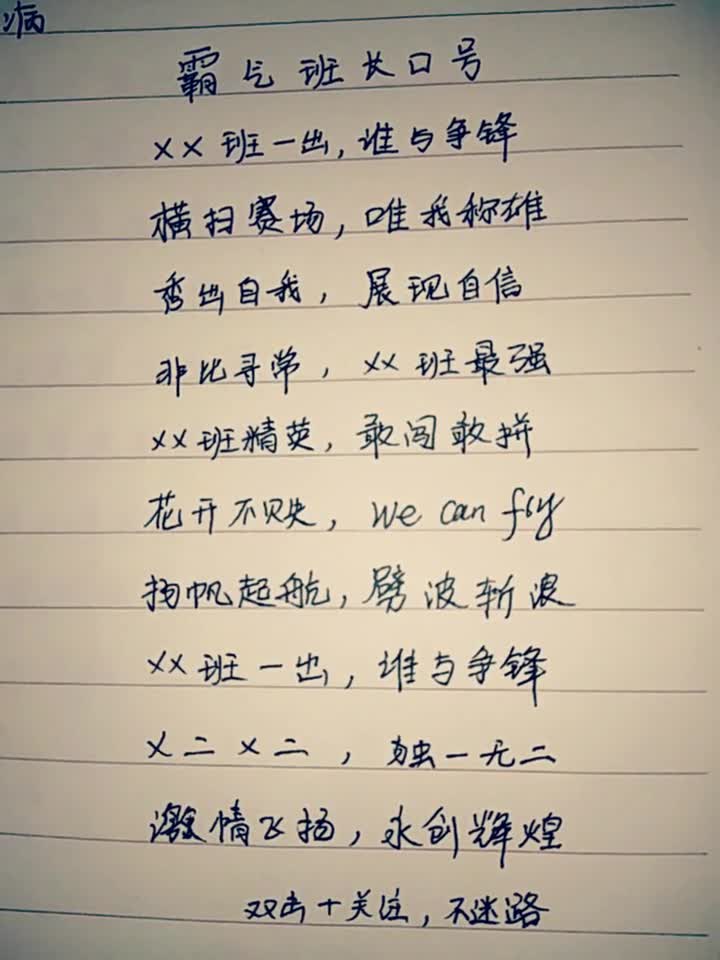 病
霸气班长口号
xx班一出,谁与争锋
横扫赛场,唯我称雄
秀出自我,展现自信
非比寻常,xx班最强
xx班精英,敢闯敢拼
花开不败,we can fly
扬帆起航,劈波斩浪
xx班一出,谁与争锋
x二x二,独一无二
激情飞扬,永创辉煌
双击+关注,不迷路